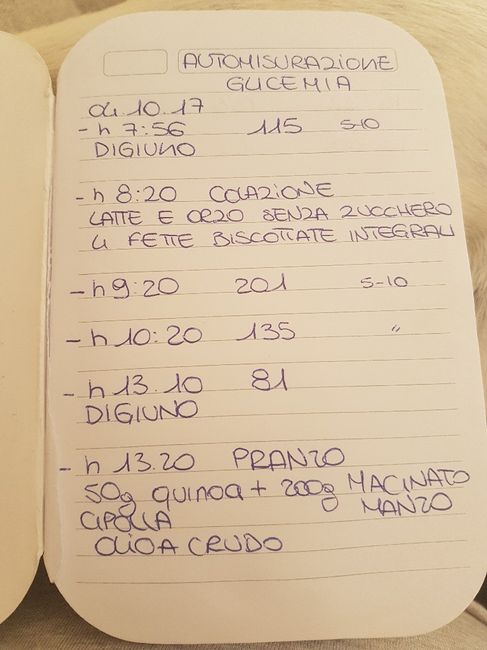 AUTOMISURAZIONE
GLICEMIA
04.10.17
- h 7:56 115 5-10
DIGIUNO
- h 8:20 COLAZIONE
LATTE E ORZO SENZA ZUCCHERO
4 FETTE BISCOTTATE INTEGRALI
- h 9:20 201 5-10
- h 10:20 135 "
- h 13.10 81
DIGIUNO
- h 13.20 PRANZO
50g quinoa + 200g MACINATO
CIPOLLA O MANZO
OLIO A CRUDO